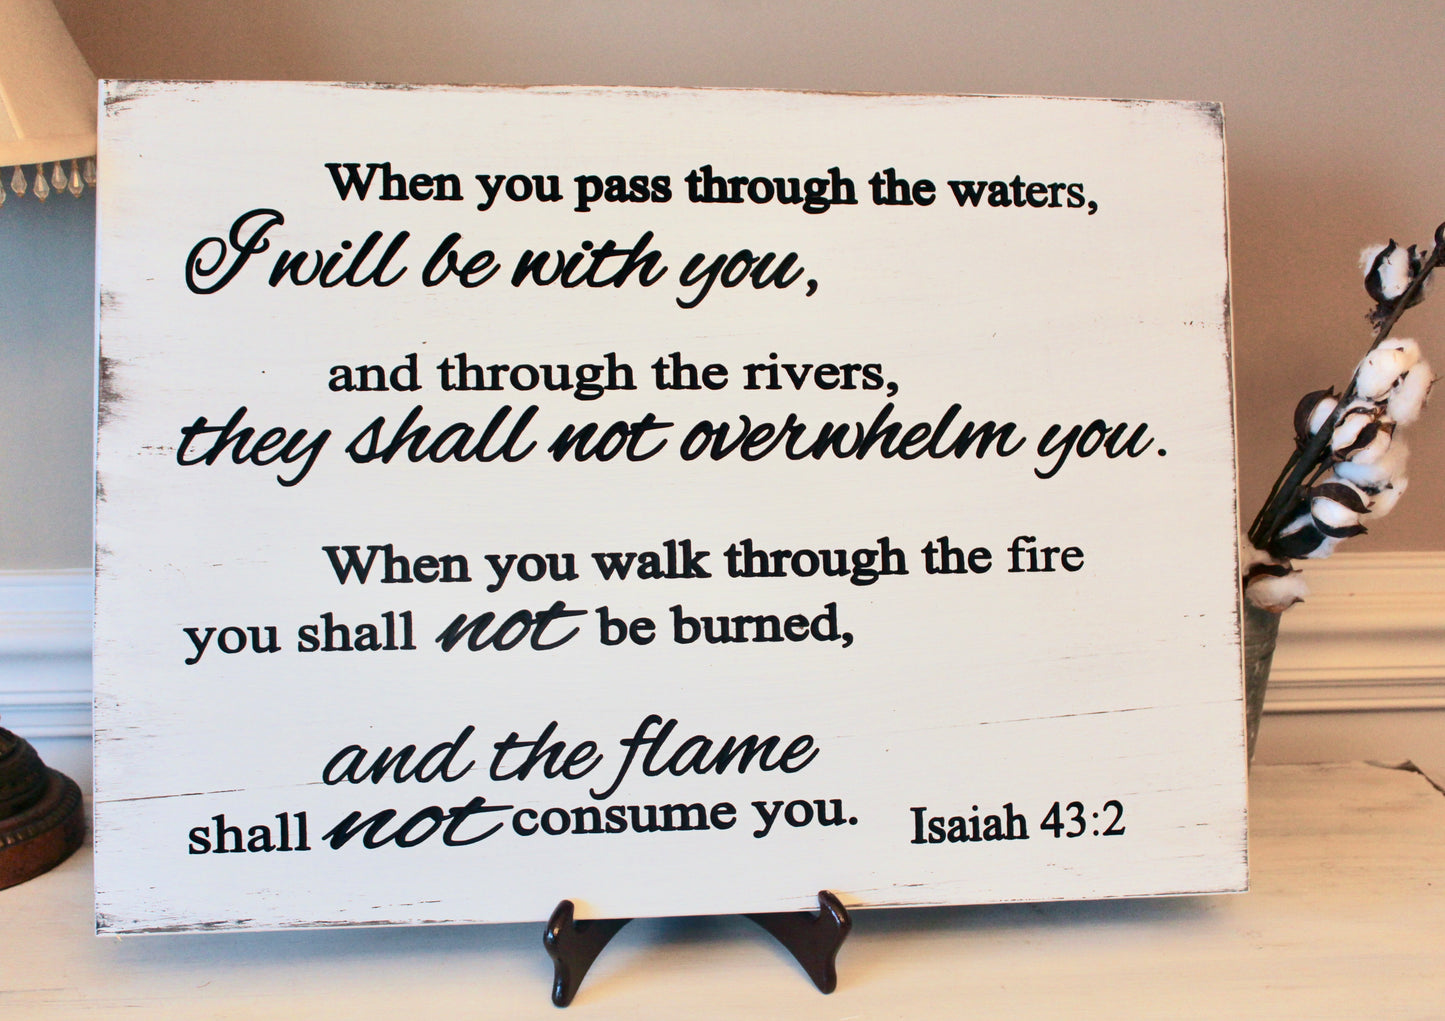 When you pass through the waters,
I will be with you,
and through the rivers,
they shall not overwhelm you.
When you walk through the fire
you shall not be burned,
and the flame
shall not consume you. Isaiah 43:2